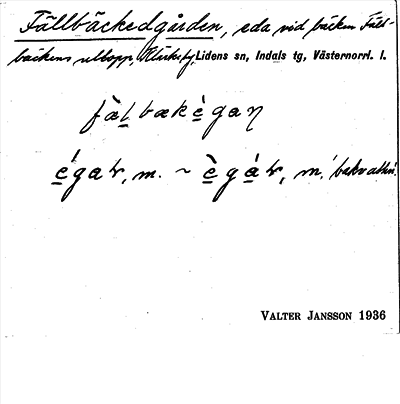 Fällbäckedgården, eda vid bäcken Fäll-
bäckens utlopp, Lidens sn, Indals tg, Västernorrl. l.
fàḷbækègaŋ
égar, m. ~ ègár, m.
VALTER JANSSON 1936